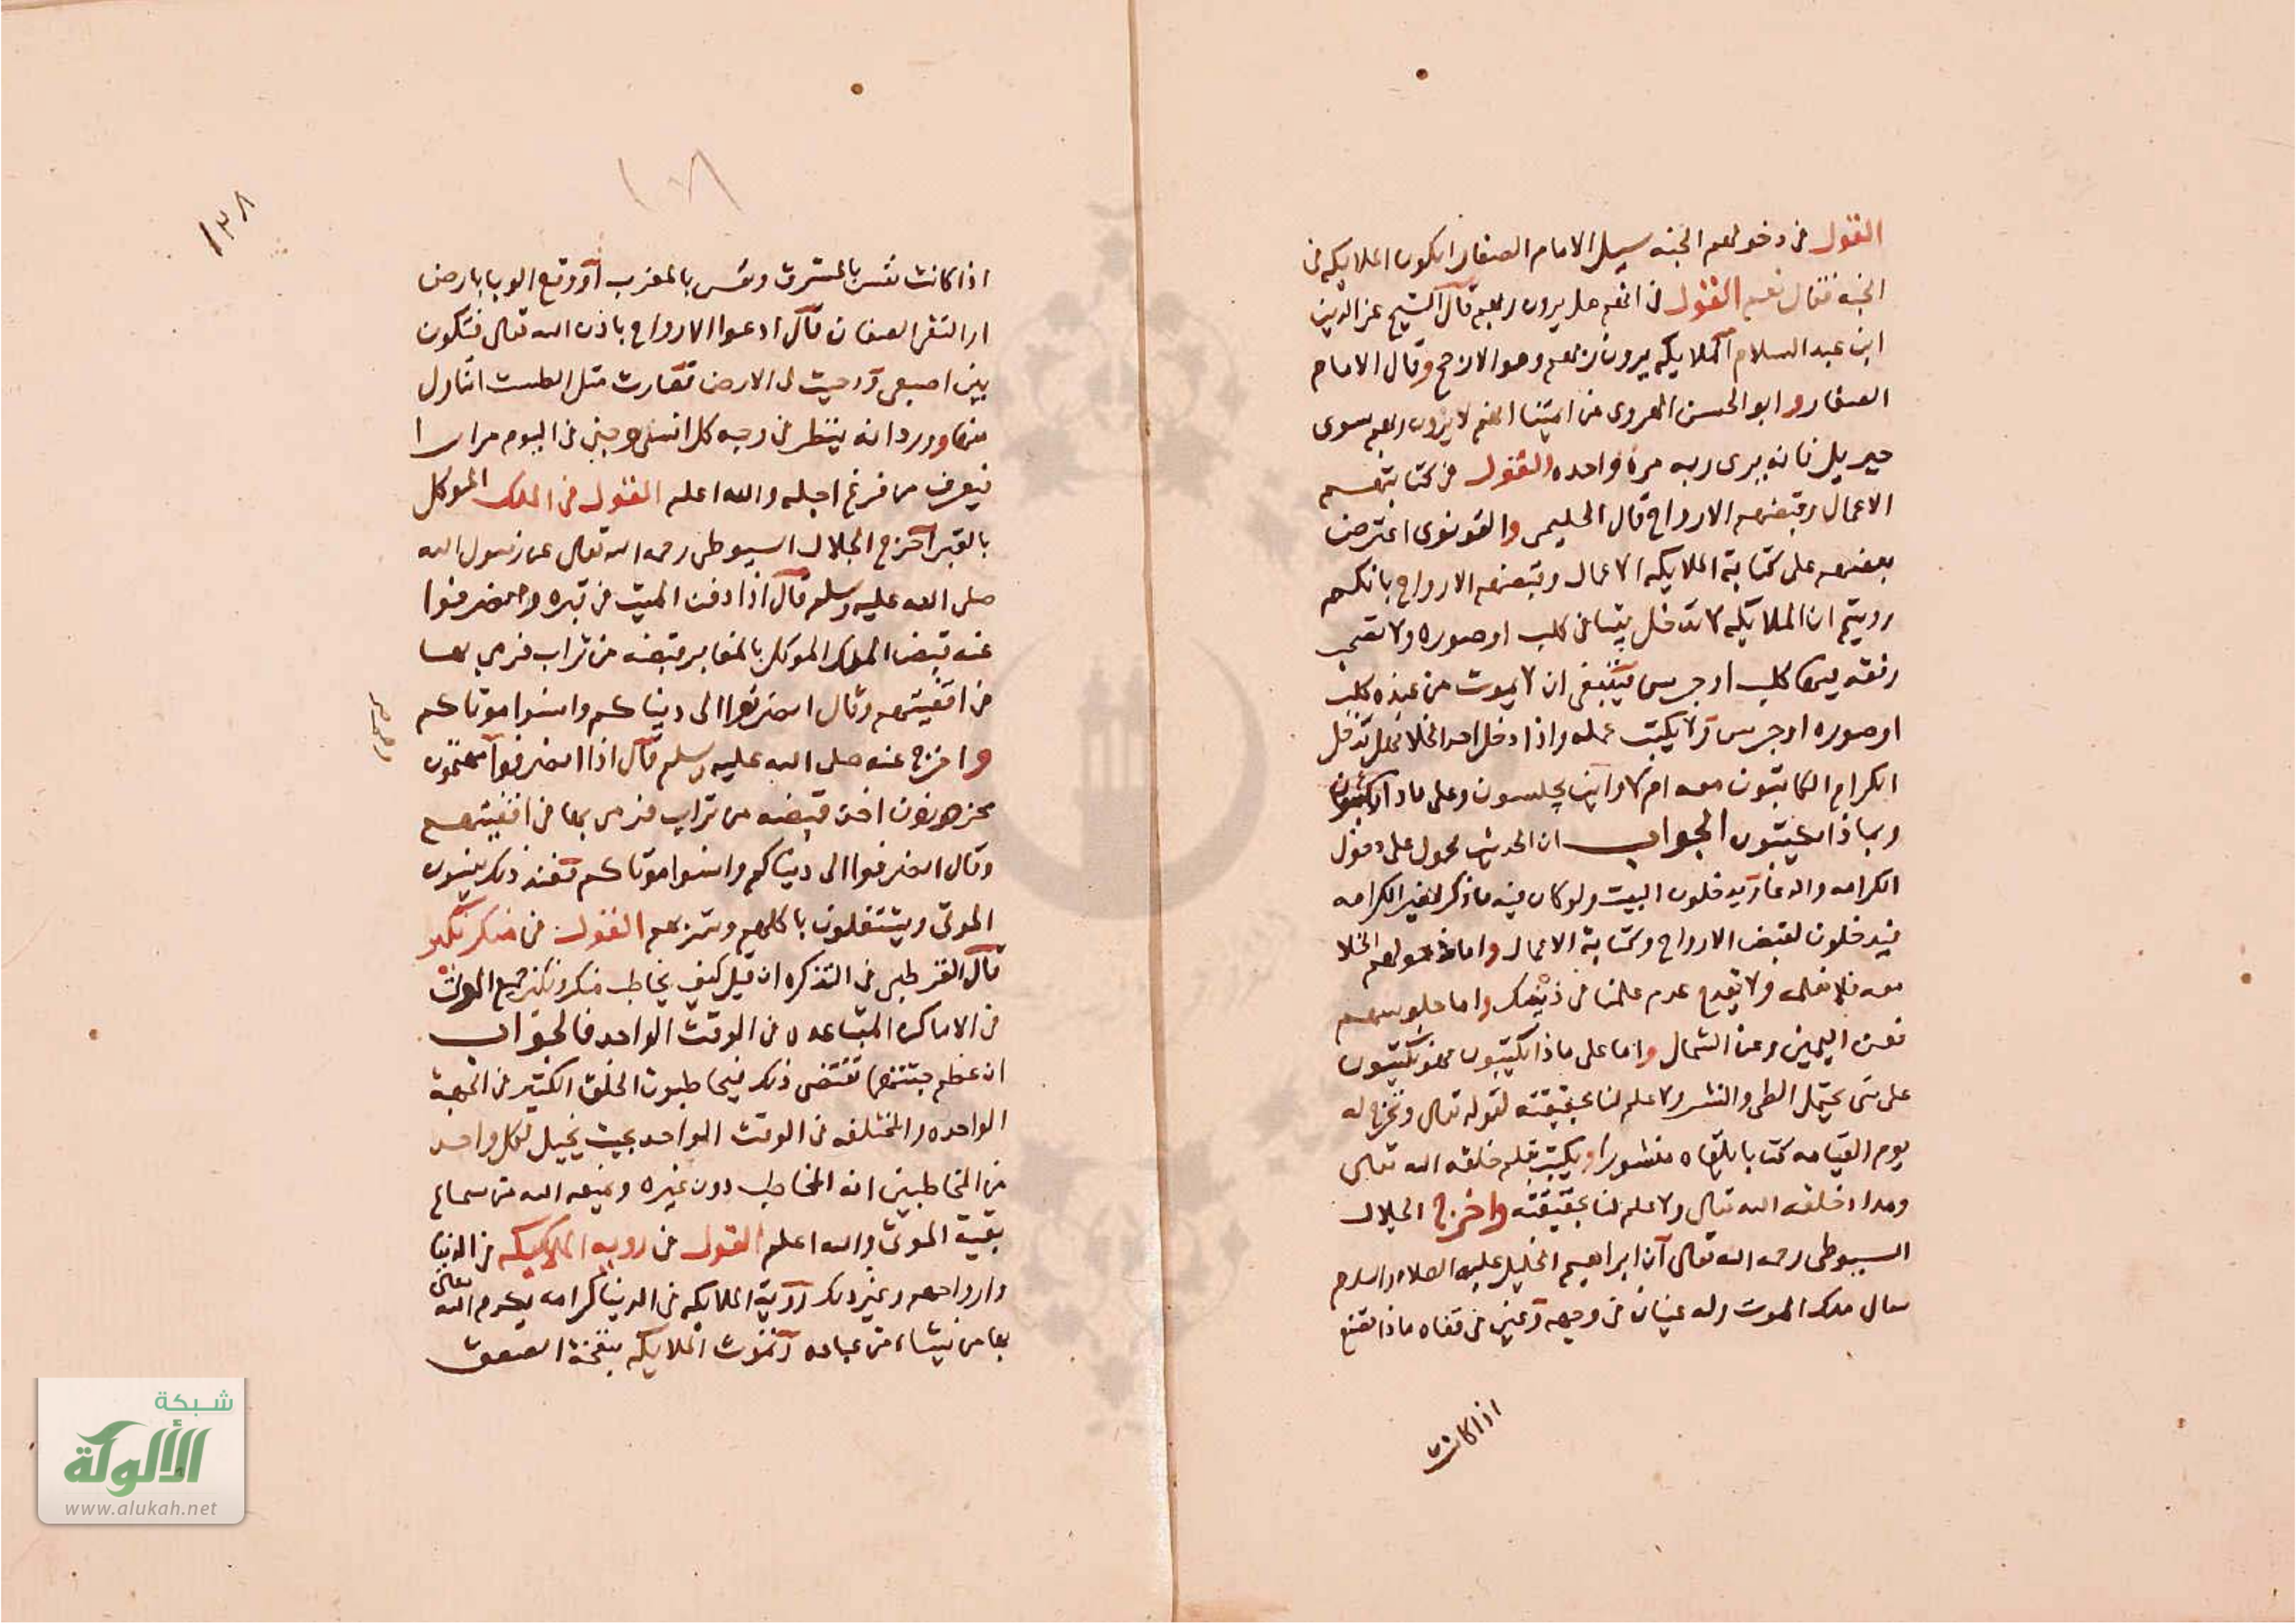 القول في دخولهم الجنه سيل الامام الصفار ايكون الملايكه في
الجنه فقال نعم القول في انهم هل يرون ربهم قال الشيخ عز الدين
ابن عبد السلام الملايكه يرون ربهم وهو الارجح وقال الامام
الصفار وابو الحسن الهروي من ايمتنا انهم لا يرون ربهم سوى
جبريل فانه يرى ربه مرة واحده القول في كتابتهم
الاعمال وقبضهم الارواح قال الحليمي والقونوى اعترض
بعضهم على كتابة الملايكه الاعمال وقبضهم الارواح بانكم
رويتم ان الملايكه لا تدخل بيتا فى كلب او صوره ولا تصحب
رفقه فيها كلب او جرس فينبغي ان لا يموت من عنده كلب
او صوره او جرس ولا يكتب عمله واذا دخل احد الخلا فهل تدخل
الكرام الكاتبون معه ام لا واين يجلسون وعلى ماذا يكتبون
وبماذا يكتبون الجواب ان الحديث محمول على دخول
الكرامه والدعا ويدخلون البيت ولو كان فيه ماذكر لغير الكرامه
فيدخلون لقبض الارواح وكتابة الاعمال واما دخولهم الخلا
معه فلا نعلمه ولا يقدح عدم علمنا في ذلك واما جلوسهم
فعن اليمين وعن الشمال واما على ماذا يكتبون فهو يكتبون
على شى يحتمل الطي والنشر ولا علم لنا بحقيقته لقوله تعالى ونخرج له
يوم القيامه كتابا يلقاه منشورا ويكتب بقلم خلقه الله تعالى
ومداد خلقه الله تعالى ولا علم لنا بحقيقته واخرج الجلال
السيوطى رحمه الله تعالى ان ابراهيم الخليل عليه الصلاه والسلام
سال ملك الموت وله عينان في وجهه وعين في قفاه ماذا تصنع
اذا كانت
١٣٨
اذا كانت نفس بالمشرق ونفس بالمغرب او وقع الوبا بارض
او التقى الصفان قال ادعوا الارواح باذن الله تعالى فتكون
بين اصبعي ودحيت لى الارض فصارت مثل الطست اتناول
منها وورد انه ينظر في وجه كل انسى وجني في اليوم مرارا
فيعرف من فرغ اجله والله اعلم القول في الملك الموكل
بالقبر اخرج الجلال السيوطى رحمه الله تعالى عن رسول الله
صلى الله عليه وسلم قال اذا دفن الميت في قبره وانصرفوا
عنه قبض الملك الموكل بالمقابر قبضه من تراب فرمى بها
في اقفيتهم وقال انصرفوا الى دنياكم وانسوا موتاكم
واخرج عنه صلى الله عليه وسلم قال اذا انصرفوا مهتمون
محزونون اخذ قبضه من تراب فرمى بها في اقفيتهم
وقال انصرفوا الى دنياكم وانسوا موتاكم فعند ذلك ينسون
الموتى ويشتغلون باكلهم وشربهم القول في منكر نكير
قال القرطبي في التذكره ان قيل كيف يخاطب منكر ونكير جميع الموتى
في الاماكن المتباعده في الوقت الواحد فالجواب
ان عظم جثتهما تقتضى ذلك فيخاطبون الخلق الكثير في الجهة
الواحده والمختلفه في الوقت الواحد بحيث يخيل لكل واحد
من المخاطبين انه المخاطب دون غيره ويمنعه الله من سماع
بقية الموتى والله اعلم القول في روية الملايكه في الدنيا
وارواحهم وغير ذلك روية الملايكه في الدنيا كرامه يكرم الله تعالى
بها من يشاء من عباده وتموت الملايكه بنفخة الصعق
شبكة
الألوكة
www.alukah.net